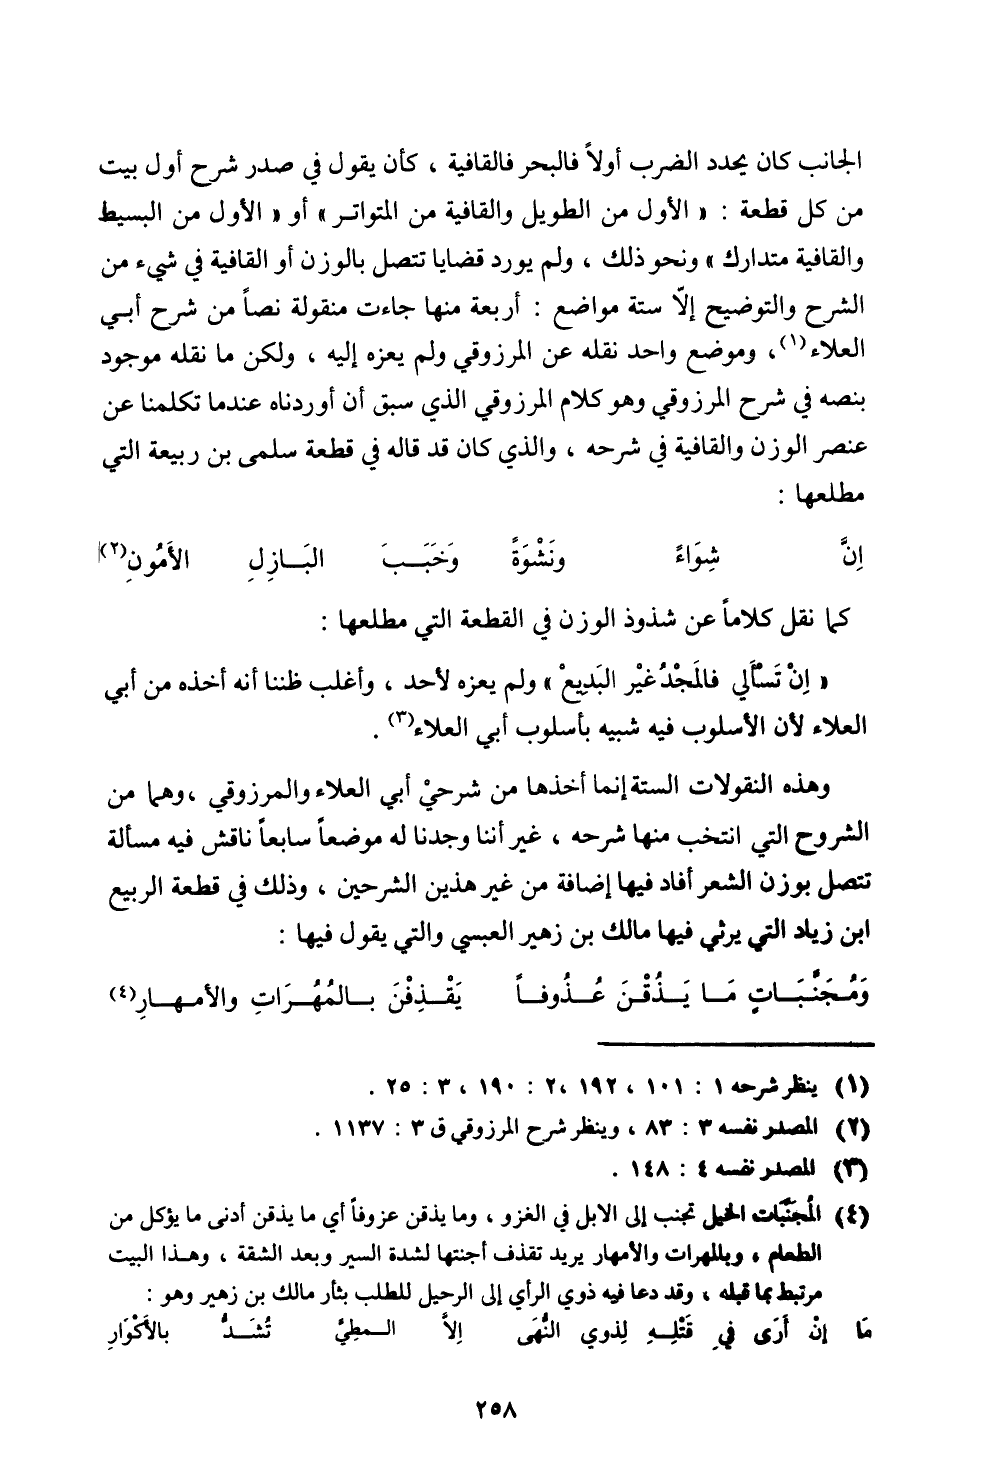 الجانب كان يحدد الضرب أولاً فالبحر فالقافية ، كأن يقول في صدر شرح أول بيت
من كل قطعة : « الأول من الطويل والقافية من المتواتر » أو « الأول من البسيط
والقافية متدارك » ونحو ذلك ، ولم يورد قضايا تتصل بالوزن أو القافية في شيء من
الشرح والتوضيح إلاّ ستة مواضع : أربعة منها جاءت منقولة نصاً من شرح أبي
العلاء(١)، وموضع واحد نقله عن المرزوقي ولم يعزه إليه ، ولكن ما نقله موجود
بنصه في شرح المرزوقي وهو كلام المرزوقي الذي سبق أن أوردناه عندما تكلمنا عن
عنصر الوزن والقافية في شرحه ، والذي كان قد قاله في قطعة سلمى بن ربيعة التي
مطلعها :
اِنَّ شِوَاءً ونَشْوَةً وَخَبَبَ البَازِلِ الأَمُونِ(٢)
كما نقل كلاماً عن شذوذ الوزن في القطعة التي مطلعها :
« اِنْ تَسْأَلي فالمَجْدُ غيْر البَدِيعْ » ولم يعزه لأحد ، وأغلب ظننا أنه أخذه من أبي
العلاء لأن الأسلوب فيه شبيه بأسلوب أبي العلاء(٣) .
وهذه النقولات الستة إنما أخذها من شرحيْ أبي العلاء والمرزوقي ، وهما من
الشروح التي انتخب منها شرحه ، غير أننا وجدنا له موضعاً سابعاً ناقش فيه مسألة
تتصل بوزن الشعر أفاد فيها إضافة من غير هذين الشرحين ، وذلك في قطعة الربيع
ابن زياد التي يرثي فيها مالك بن زهير العبسي والتي يقول فيها :
وَمُجَنَّبَاتٍ مَا يَذُقْنَ عُذُوفاً يَقْذِفْنَ بالمُهُرَاتِ والأمهارِ(٤)
(١) ينظر شرحه ١ : ١٠١ ، ١٩٢ ،٢ : ١٩٠ ، ٣ : ٢٥ .
(٢) المصدر نفسه ٣ : ٨٣ ، وينظر شرح المرزوقي ق ٣ : ١١٣٧ .
(٣) المصدر نفسه ٤ : ١٤٨ .
(٤) المُجَنَّبات الخيل تجنب إلى الابل في الغزو ، وما يذقن عزوفاً أي ما يذقن أدنى ما يؤكل من
الطعام ، وبالمهرات والأمهار يريد تقذف أجنتها لشدة السير وبعد الشقة ، وهذا البيت
مرتبط بما قبله ، وقد دعا فيه ذوي الرأي إلى الرحيل للطلب بثأر مالك بن زهير وهو :
مَا اِنْ أَرَى فِي قَتْلِهِ لِذوي النُّهَى اِلاَّ المطِيَّ تُشَدُّ بالأَكْوَارِ
٢٥٨